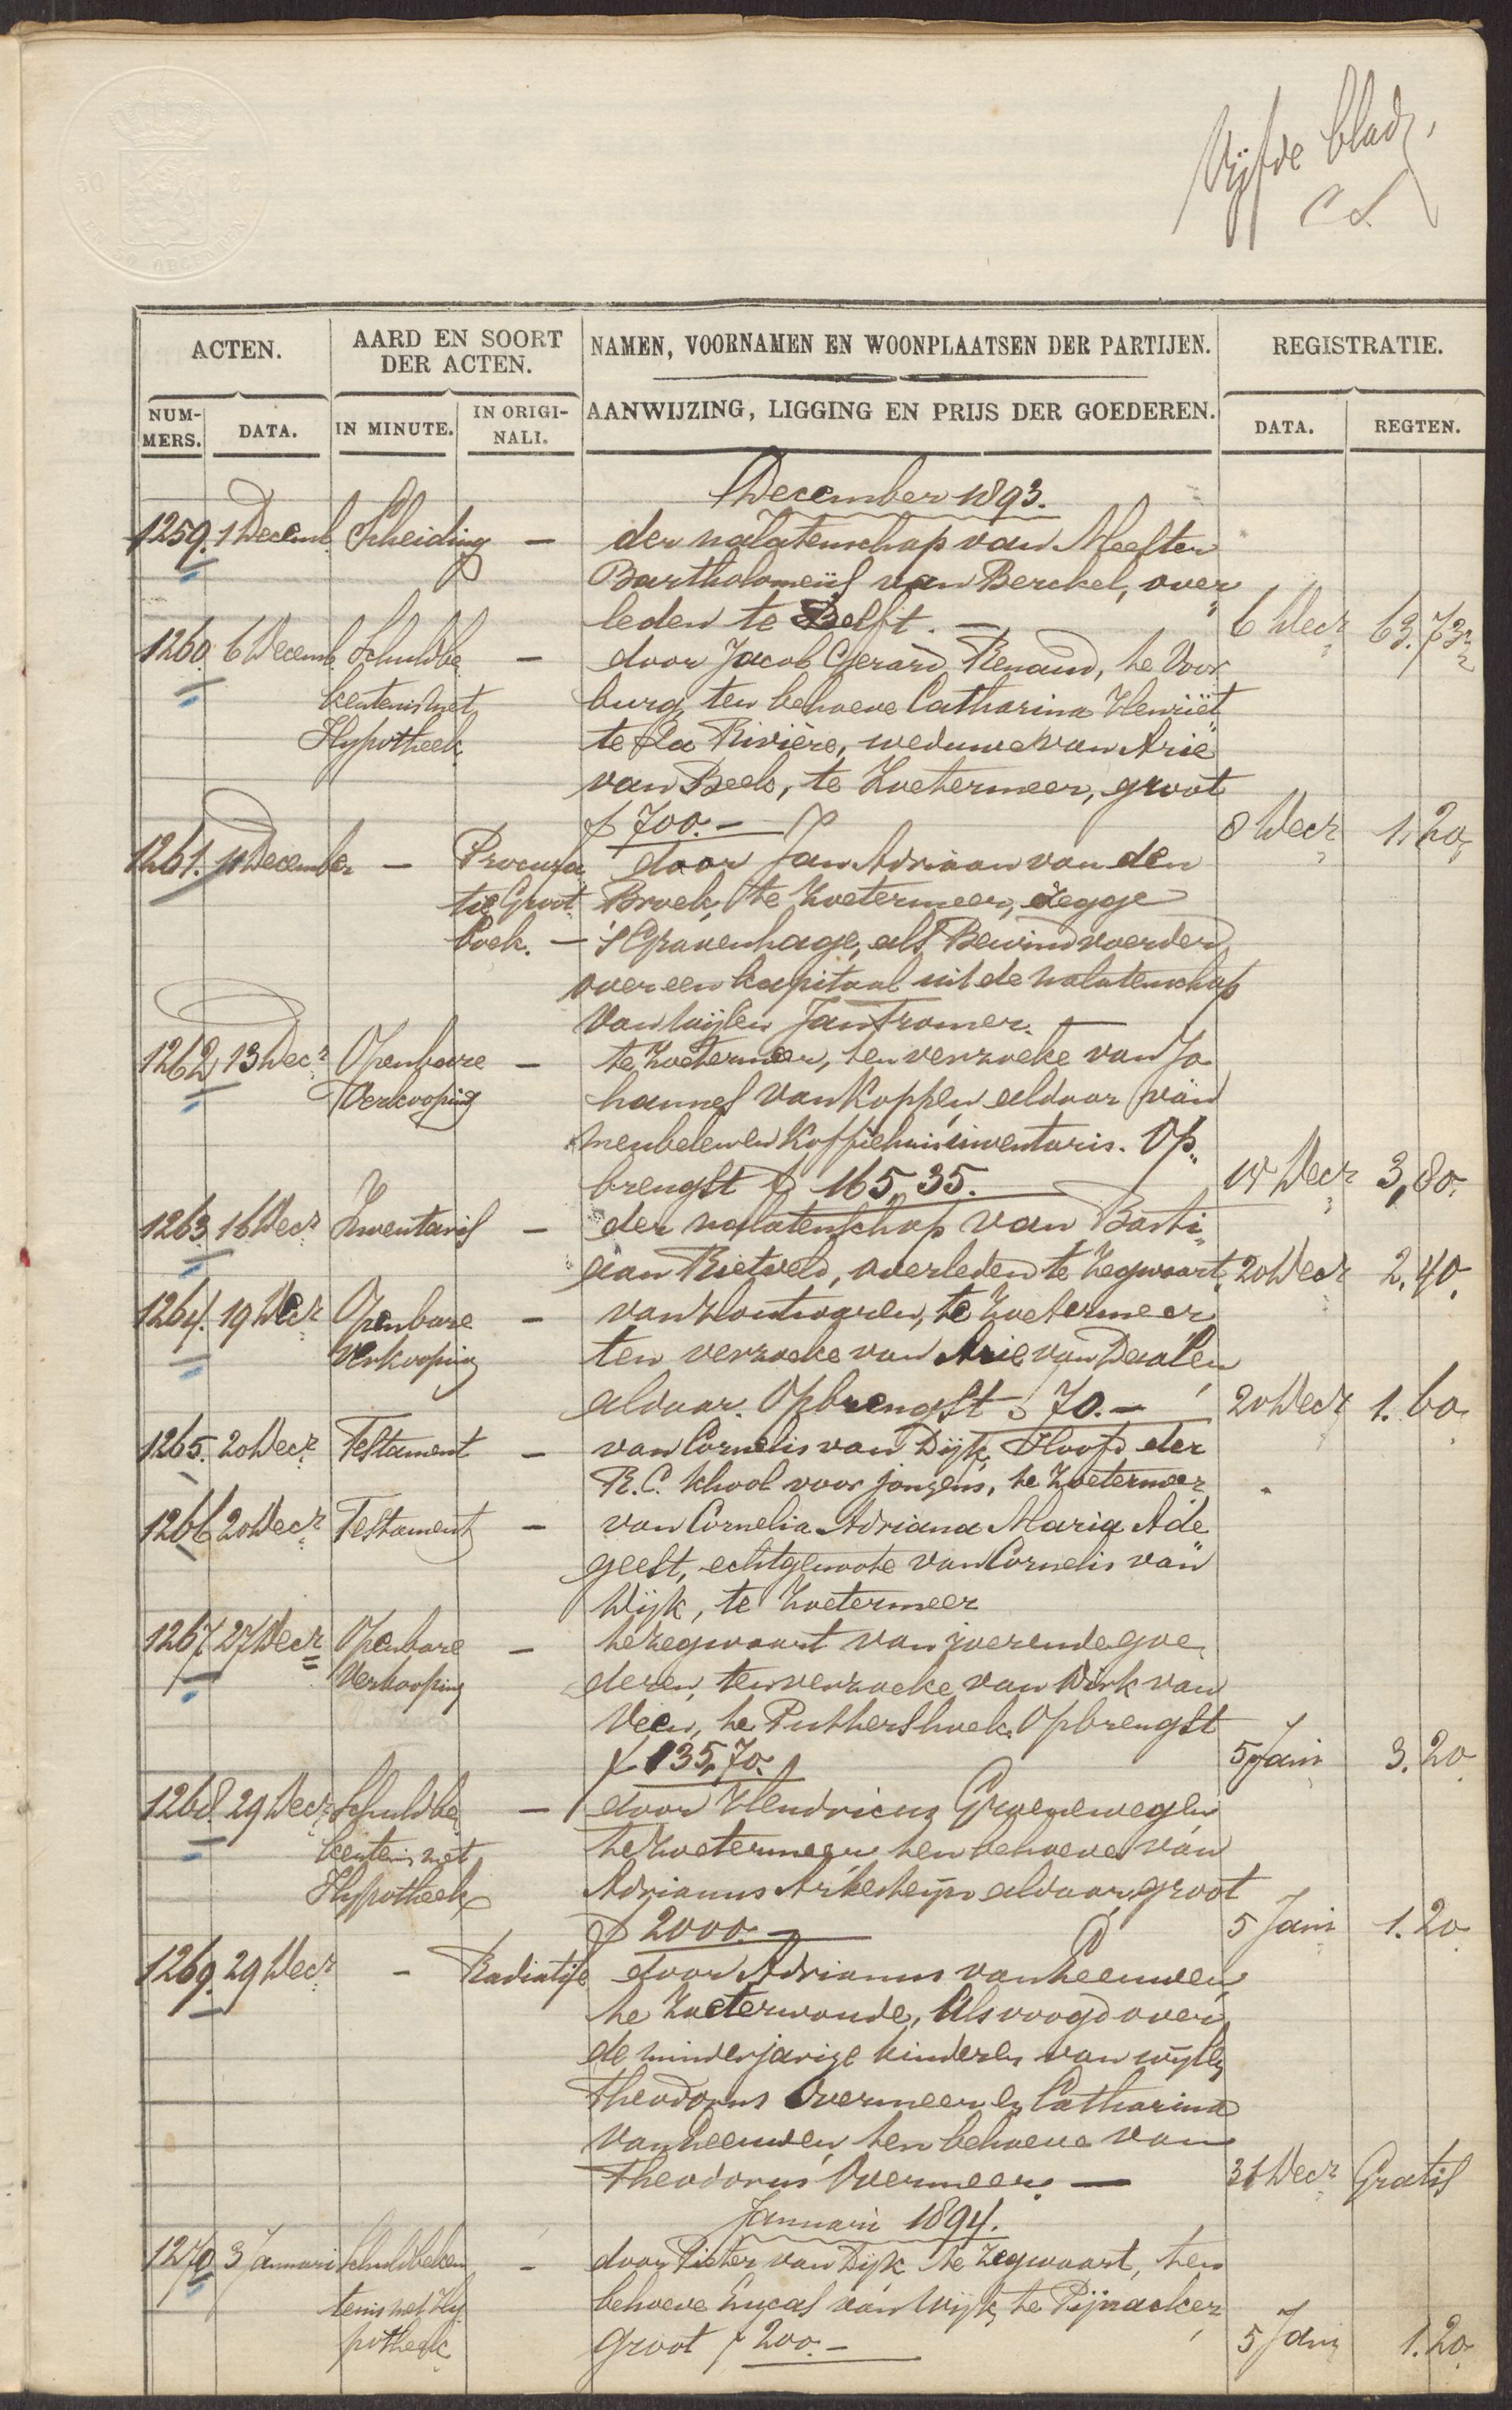 Vijfde bladz.
C S.
ACTEN.
AARD EN SOORT DER ACTEN.
NAMEN, VOORNAMEN EN WOONPLAATSEN DER PARTIJEN.
REGISTRATIE.
NUM-MERS.
DATA.
IN MINUTE.
IN ORIGI-NALI.
AANWIJZING, LIGGING EN PRIJS DER GOEDEREN.
DATA.
REGTEN.
December 1893.
1259. 1 Decemb. Scheiding — der nalatenschap van Meester
Bartholomeüs van Berckel, over
leden te Delft. — 6 Decr 63.73
1260 6 Decemb. Schuldbe — door Jacob Gerard Renaud, te Voor
kentenis met burg, ten behoeve Catharina Henriët
Hypotheek te La Rivière, weduwe van Arie
van Beels, te Zoetermeer, groot
f 700.— 8 Decr 1.20
1261. 11 December — Procura door Jan Adriaan van den
tie Groot Broek, te Zoetermeer, zegge
boek. — 's Gravenhage, als Bewindvoerder
over een kapitaal uit de nalatenschap
van wijlen Jan Tromer. —
1262 13 Decr Openbare — te Zoetermeer, ten verzoeke van Jo
Verkooping hannes van Koppen aldaar van
meubelen en Koffiehuisinventaris. Op
brengst f 165,35. 14 Decr 3,80.
1263 16 Decr Inventaris — der nalatenschap van Basti
aan Rietveld, overleden te Zegwaart. 20 Decr 2.40.
1264. 19 Decr Openbare — van houtwaren, te Zoetermeer
Verkooping ten verzoeke van Arie van Daalen
aldaar. Opbrengst f 70.— 20 Decr 1.60
1265. 20 Decr Testament — van Cornelis van Dijk, Hoofd der
R.C. School voor jongens, te Zoetermeer
1266 20 Decr Testament — van Cornelia Adriana Maria Ade
geest, echtgenoote van Cornelis van
Dijk, te Zoetermeer
1267. 27 Decr Openbare — te Zegwaart van roerende goe
Verkooping deren, ten verzoeke van Dirk van
Veen, te Puttershoek. Opbrengst
f 135,70. 5 Jan 3.20
1268. 29 Decr Schuldbe — door Hendricus Groenewegen
kentenis met te Zoetermeer ten behoeve van
Hypotheek Adrianus aldaar, groot
f 2000.— 5 Jan 1.20
1269. 29 Decr — Radiatie door Adrianus van Leeuwen
te Zoeterwoude, als voogd over
de minderjarige kinderen van wijlen
Theodorus Overmeer en Catharina
van Leeuwen, ten behoeve van
Theodorus Overmeer. — 31 Decr Gratis
Januari 1894.
1270 3 Januari Schuldbeken — door Pieter van Dijk te Zegwaart, ten
tenis met Hy behoeve Lucas van Wijk, te Pijnacker
potheek groot f 200.— 5 Jan 1.20